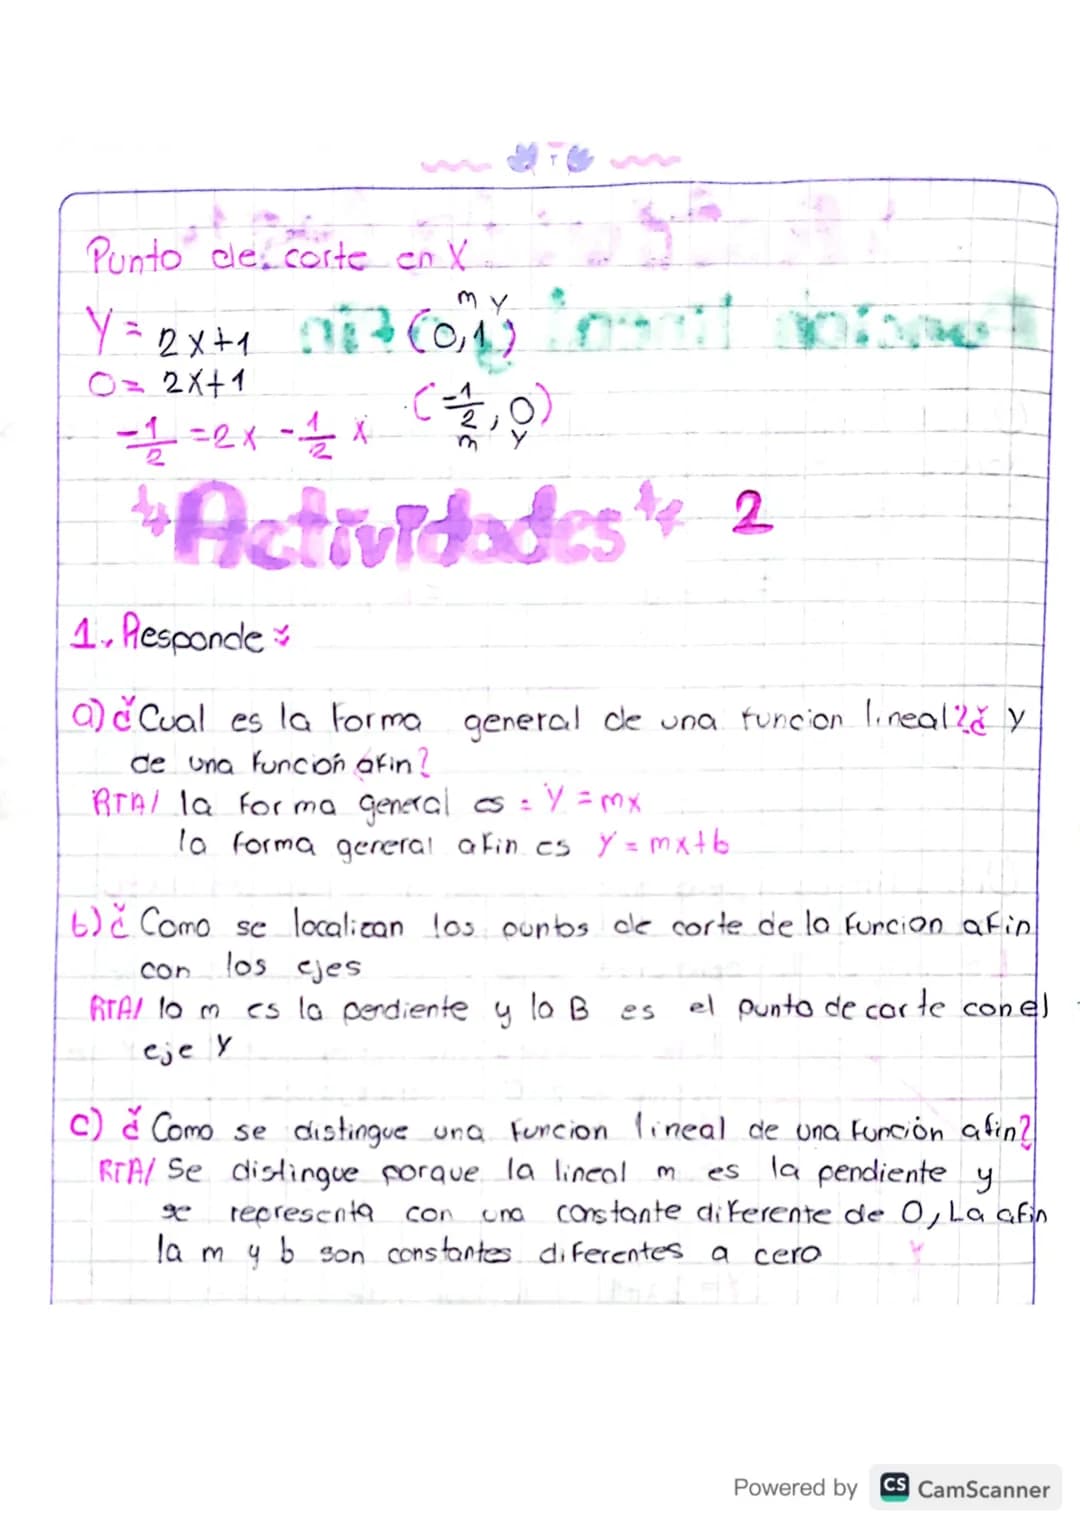 Punto de corte en X
m y
Y = 2x+1 (0,1)
0 = 2x+1
(-1/2, 0)
-1/2 = 2x - 1/2 x m y
Actividades 2
1. Responde:
a) ¿Cual es la forma general de una funcion lineal? ¿ y
de una función afin?
RTA/ la forma general es = Y = mx
la forma general afin es Y = mx+b
b) ¿Como se localizan los puntos de corte de la funcion afin
con los ejes
RTA/ la m es la pendiente y la B es el punto de corte con el
eje Y
c) ¿Como se distingue una funcion lineal de una función afin?
RTA/ Se distingue porque la lineal m es la pendiente y
se representa con una constante diferente de 0, La afin
la m y b son constantes diferentes a cero
Powered by CS CamScanner